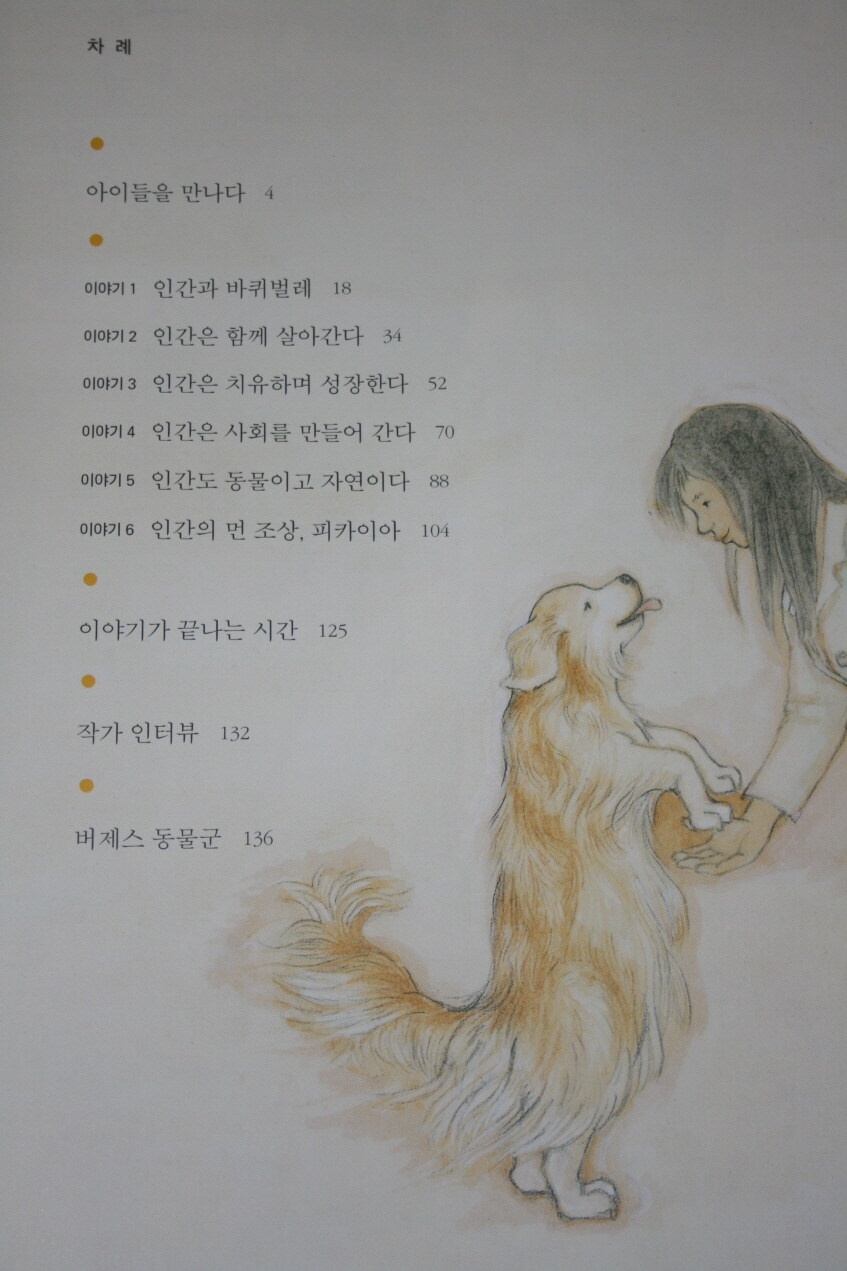 차 례
아이들을 만나다 4
이야기 1 인간과 바퀴벌레 18
이야기 2 인간은 함께 살아간다 34
이야기 3 인간은 치유하며 성장한다 52
이야기 4 인간은 사회를 만들어 간다 70
이야기 5 인간도 동물이고 자연이다 88
이야기 6 인간의 먼 조상, 피카이아 104
이야기가 끝나는 시간 125
작가 인터뷰 132
버제스 동물군 136